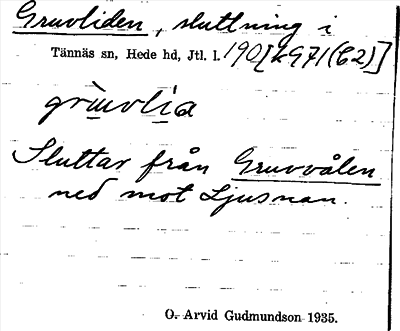 Gruvliden, sluttning i
Tännäs sn, Hede hd, Jtl. l. 190[k971(C2)]
grùvlìa
Sluttar från Gruvvålen
ned mot Ljusnan.
O. Arvid Gudmundson 1935.